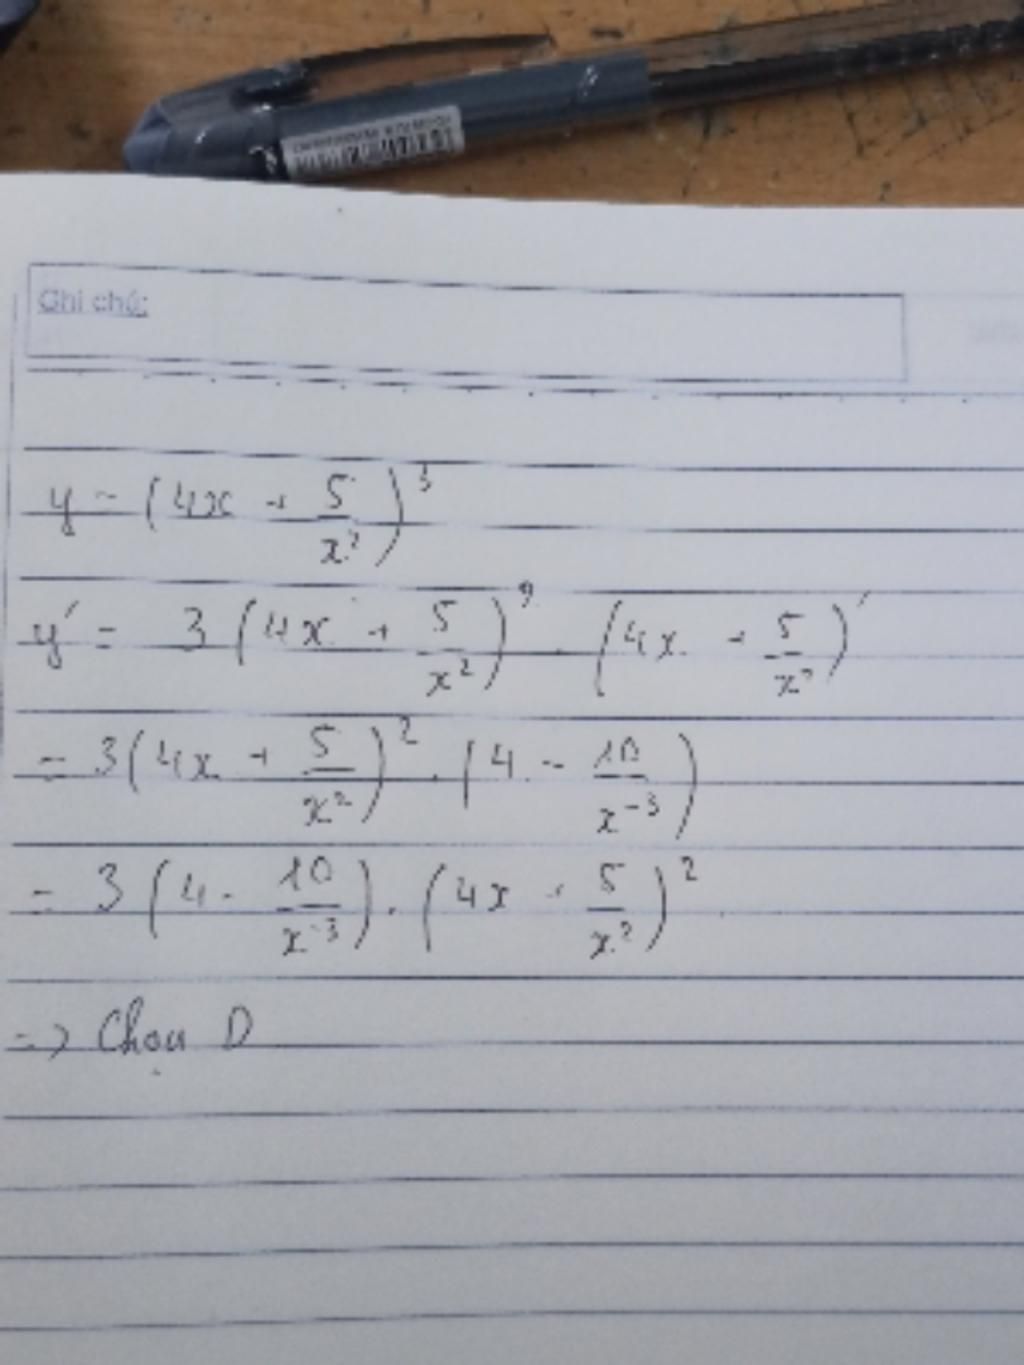 Ghi chú:
y = (4x + 5/x²)³
y' = 3(4x + 5/x²)² . (4x + 5/x²)'
= 3(4x + 5/x²)² . (4 - 10/x⁻³)
= 3(4 - 10/x⁻³) . (4x + 5/x²)²
=> Chọn D